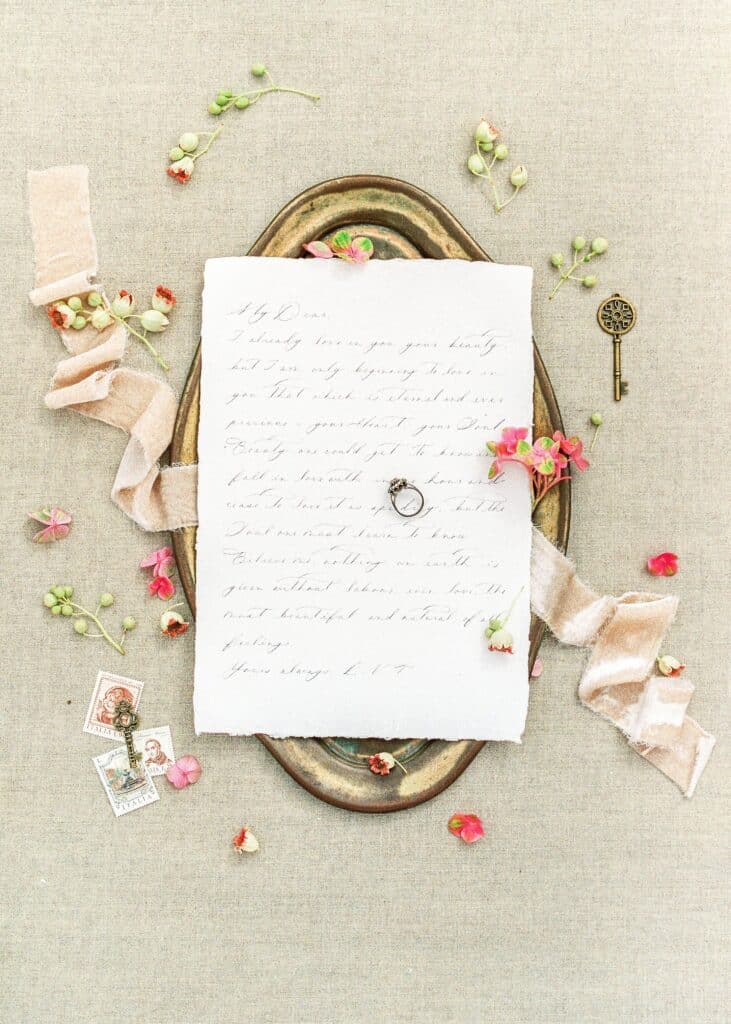 My Dear,
I already love in you your beauty
but I am only beginning to love in
you that which is eternal and ever
precious - your Heart, your Soul
Beauty one could get to know and
fall in love with in hour and
cease to love it as speedily, but the
Soul one must learn to know
Believe me, nothing on earth is
given without labour, even love, the
most beautiful and natural of
feelings
Yours always L. N. T
ITALIA
ITALIA